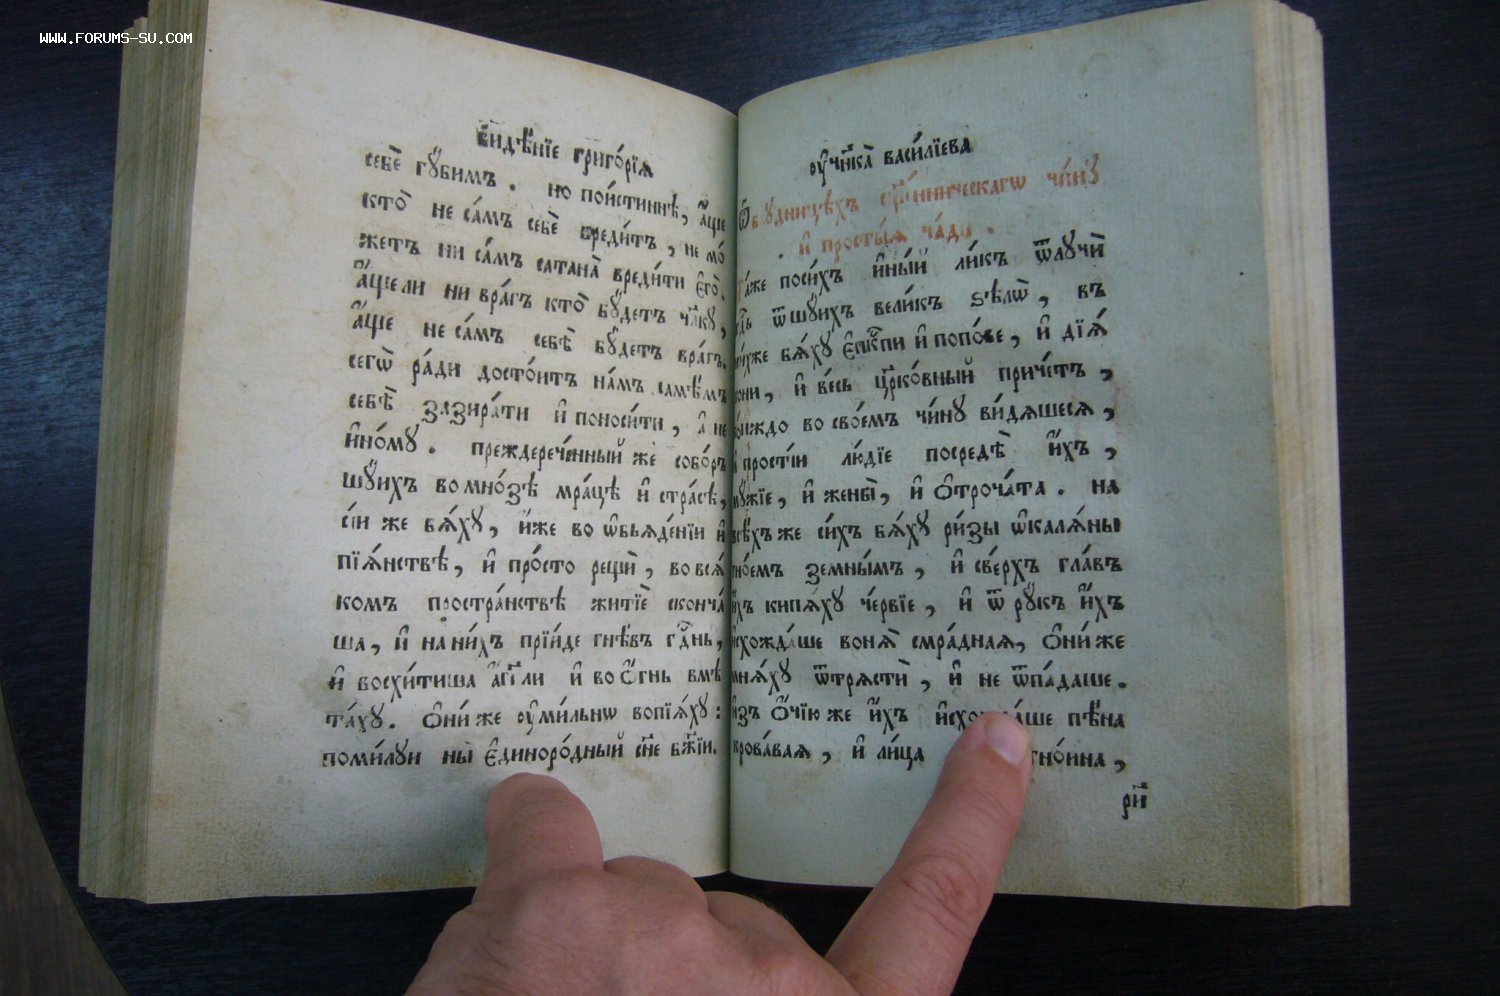 WWW.FORUMS-SU.COM
видѣ́нїе григо́рїѧ
себѐ гꙋ́бимъ . но пои́стиннѣ, а҆́ще
кто̀ не са́мъ себѐ вреди́тъ, не мо́
жетъ ни са́мъ сатана̀ вреди́ти є҆го̀.
а҆́ще ли ни вра́гъ кто̀ бꙋ́детъ чл҃кꙋ,
а҆́ще не са́мъ себѣ̀ бꙋ́детъ вра́гъ.
сегѡ̀ ра́ди досто́итъ на́мъ самѣ́мъ
себѣ̀ зазира́ти и҆ поноси́ти, а҆ не
и҆но́мꙋ . преждерече́нный же собо́ръ
шꙋ́ихъ во мно́зѣ мра́цѣ и҆ стра́сѣ,
сі́и же бѧ́хꙋ, и҆́же во ѡ҆бьѧде́нїи и҆
пїѧ́нствѣ, и҆ про́сто рещѝ, во всѧ́
комъ простра́нствѣ житїѐ сконча́
ша, и҆ на ни́хъ прїи́де гнѣ́въ гд҃нь,
и҆ восхи́тиша а҆́гг҃ли и҆ во ѻ҆́гнь вмѣ
та́хꙋ. ѻ҆ни́ же ѹ҆ми́льнѡ вопїѧ́хꙋ :
поми́лꙋи ны̀ є҆диноро́дный сн҃е бж҃їи.
ѹ҆чн҃ка̀ васи́лїева
и҆ просты́ѧ ча́ди .
та́же поси́хъ и҆ны́й ли́къ ѿлꙋчѝ
ѿшꙋ́ихъ вели́къ ѕѣлѡ̀, въ
ни́хже бѧ́хꙋ є҆пⷭ҇кпи и҆ попо́ве, и҆ дїѧ́
кони, и҆ ве́сь цр҃ко́вный при́четъ,
ко́иждо во свое́мъ чи́нꙋ ви́дѧшесѧ,
и҆ простїи лю́дїе посредѣ̀ и҆́хъ,
мꙋ́жїе, и҆ жены̀, и҆ ѻ҆троча́та . на
всѣ́хъ же си́хъ бѧ́хꙋ ри́зы ѡ҆калѧ́ны
гно́емъ земны́мъ, и҆ све́рхъ гла́въ
и҆́хъ кипѧ́хꙋ че́рвїе, и҆ ѿ рꙋ́къ и҆́хъ
и҆схожда́ше вонѧ̀ смра́днаѧ, ѻ҆ни́ же
мнѧ́хꙋ ѿтрѧстѝ, и҆ не ѿпа́даше.
и҆зъ ѻ҆́чїю же и҆́хъ пѣ́на
крова́ваѧ, и҆ ли́ца гно́ина,
ри҃